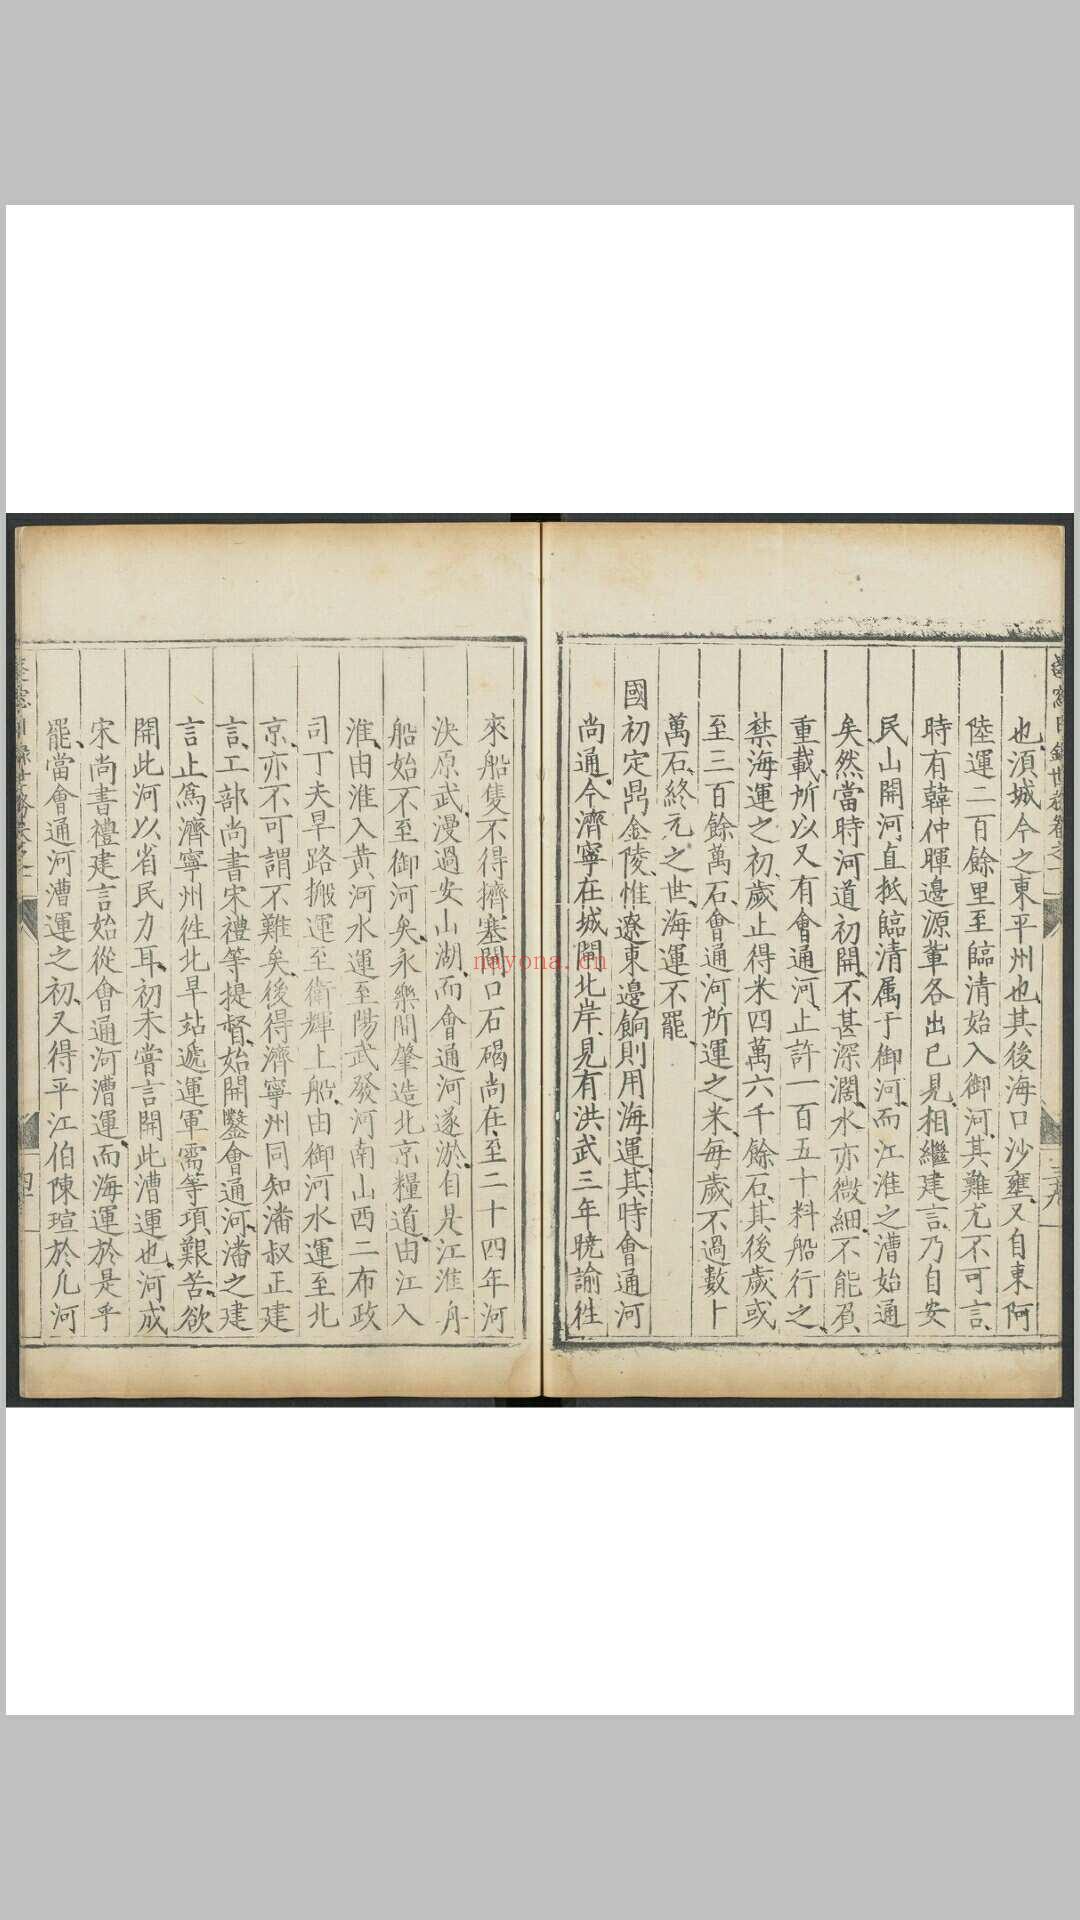 也須城今之東平州也其後海口沙壅又自東阿
陸運二百餘里至臨清始入御河其難尤不可言
時有韓仲暉邊源軰各出已見相繼建言乃自安
民山開河直抵臨清属于御河而江淮之漕始通
矣然當時河道初開不甚深濶水亦微細不能負
重載所以又有會通河止許一百五十料船行之
禁海運之初歲止得米四萬六千餘石其後歲或
至三百餘萬石會通河所運之米每歲不過數十
萬石終元之世海運不罷
國初定鼎金陵惟遼東邊餉則用海運其時會通河
尚通今濟寧在城閘北岸見有洪武三年曉諭徃
來船隻不得擠塞閘口石碣尚在至二十四年河
決原武漫過安山湖而會通河遂淤自是江淮舟
船始不至御河矣永樂間肇造北京糧道由江入
淮由淮入黄河水運至陽武發河南山西二布政
司丁夫旱路搬運至衛輝上船由御河水運至北
京亦不可謂不難矣後得濟寧州同知潘叔正建
言工部尚書宋禮等提督始開鑿會通河潘之建
言止爲濟寧州徃北旱站遞運軍需等項艱苦欲
開此河以省民力耳初未嘗言開此漕運也河成
宋尚書禮建言始從會通河漕運而海運於是乎
罷當會通河漕運之初又得平江伯陳瑄於凡河
nayona.cn